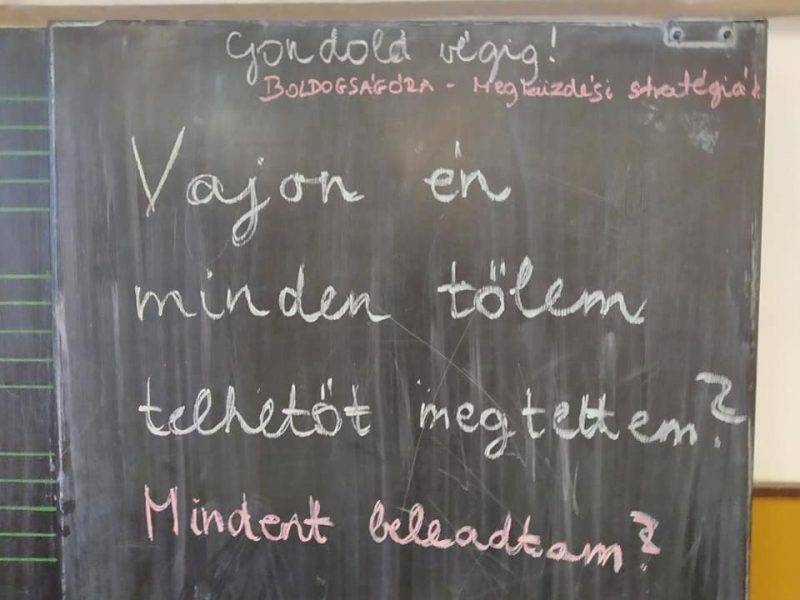 Gondold végig!
BOLDOGSÁGÓRA - Megküzdési stratégiák
Vajon én
minden tőlem
telhetőt megtettem?
Mindent beleadtam?